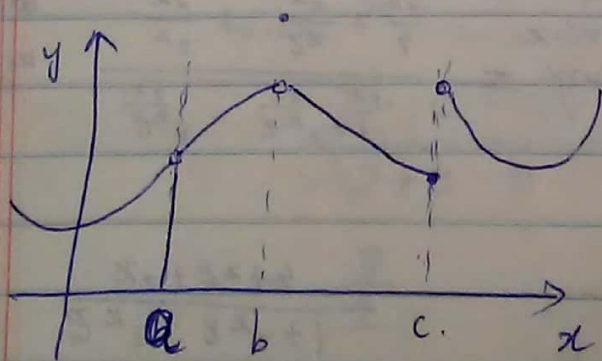 y
a b c. x